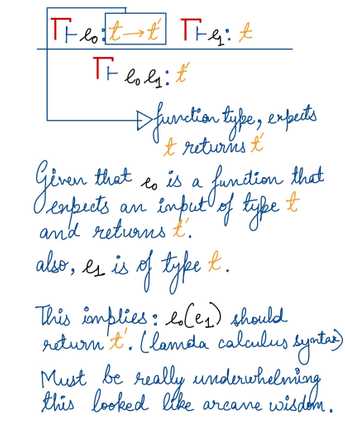 Γ ⊢ e₀ : t → t′ Γ ⊢ e₁ : t
Γ ⊢ e₀ e₁ : t′
function type, expects
t returns t′
Given that e₀ is a function that
expects an input of type t
and returns t′.
also, e₁ is of type t.
This implies : e₀(e₁) should
return t′. (lamda calculus syntax)
Must be really underwhelming
this looked like arcane wisdom.